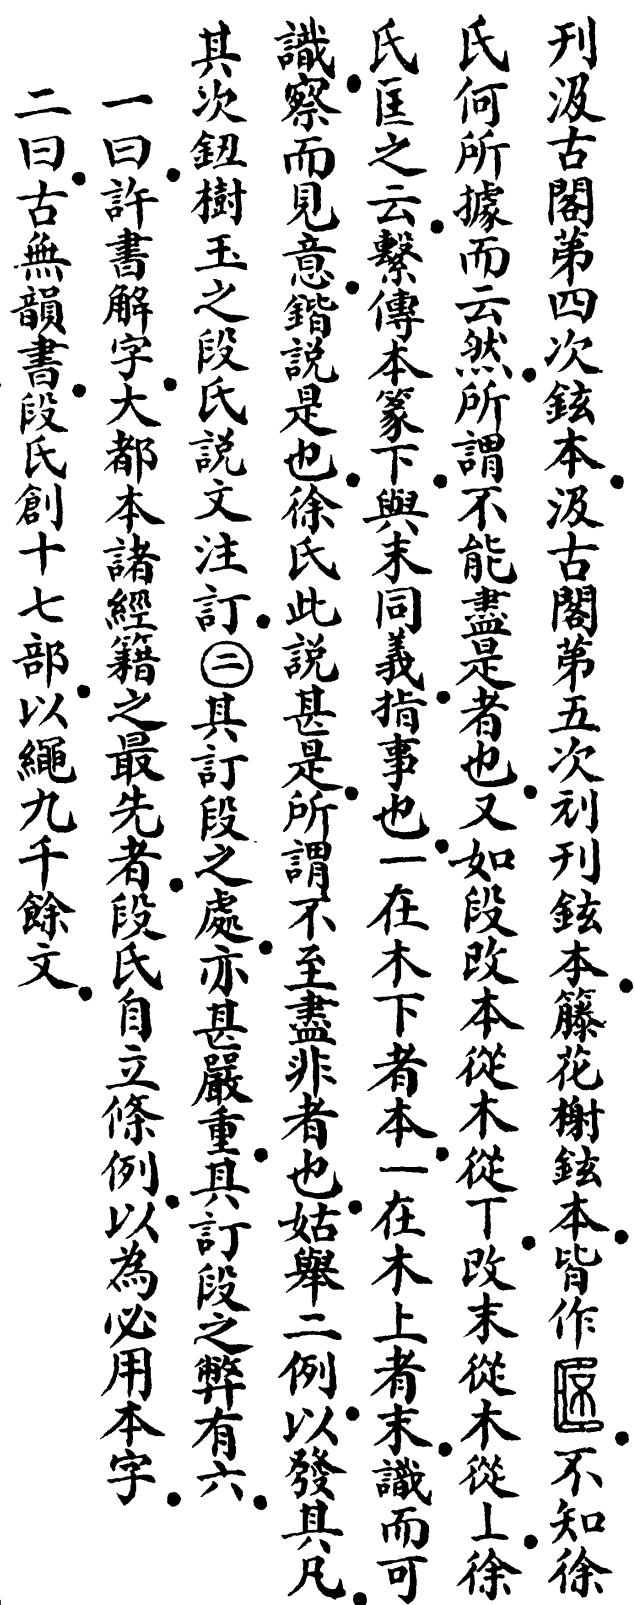 刊汲古閣第四次鉉本汲古閣第五次刓刊鉉本籐花榭鉉本皆作不知徐
氏何所據而云然所謂不能盡是者也又如段改本從木從丅改末從木從丄徐
氏匡之云繫傳本篆下與末同義指事也一在木下者本一在木上者末識而可
識察而見意鍇説是也徐氏此説甚是所謂不至盡非者也姑舉二例以發其凡
其次鈕樹玉之段氏説文注訂㊁其訂段之處亦甚嚴重其訂段之弊有六
一曰許書解字大都本諸經籍之最先者段氏自立條例以為必用本字
二曰古無韻書段氏創十七部以繩九千餘文